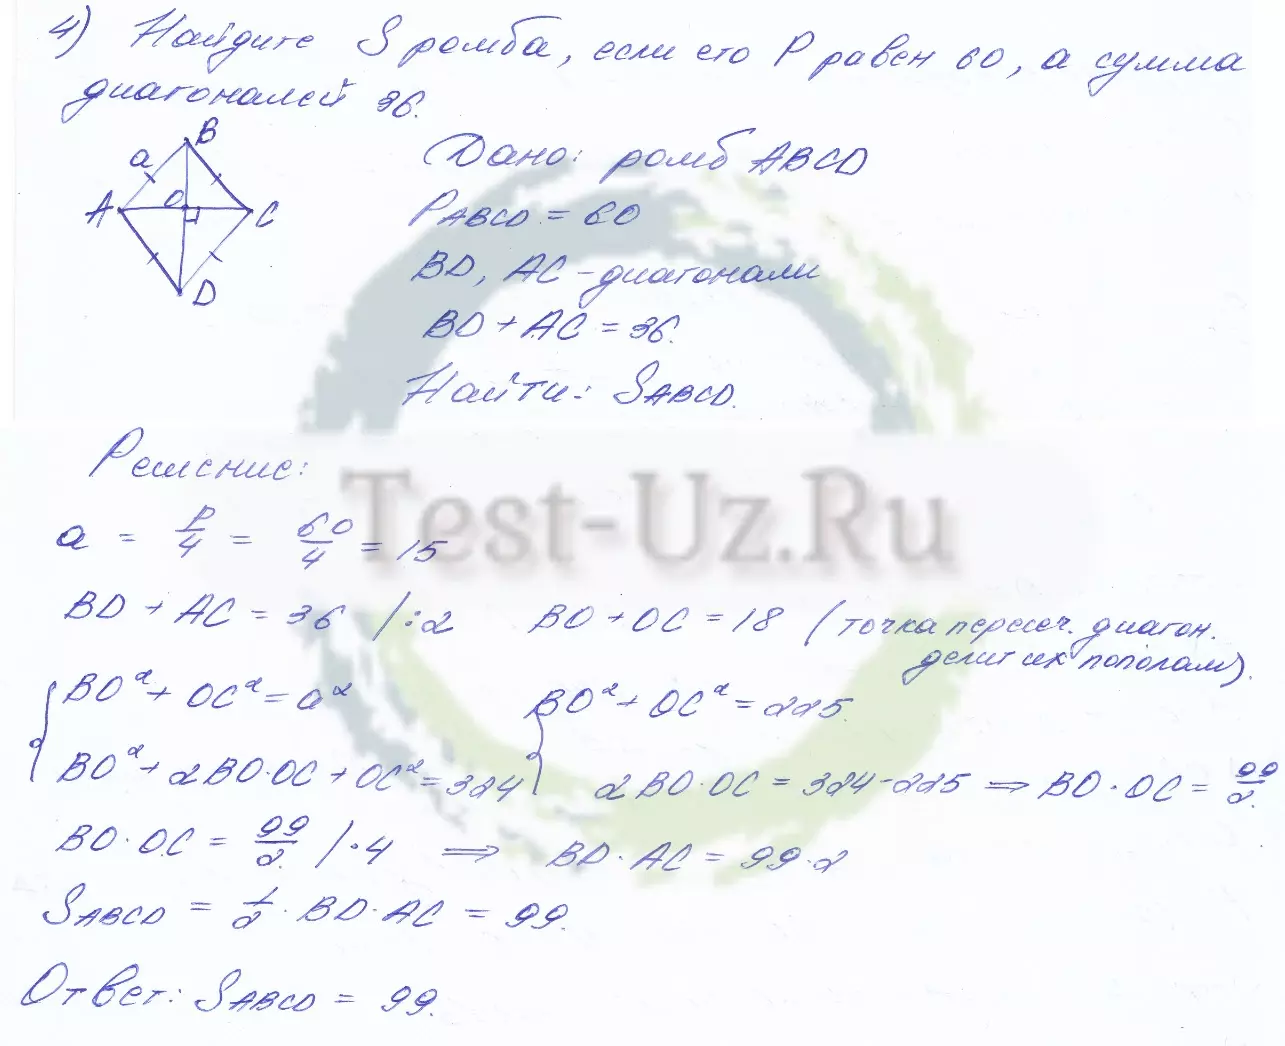 4) Найдите S ромба, если его P равен 60, а сумма
диагоналей 36.
B
a
A O C
D
Дано: ромб ABCD
PABCD = 60
BD, AC - диагонали
BD + AC = 36.
Найти: SABCD.
Test-Uz.Ru
Решение:
a = P/4 = 60/4 = 15
BD + AC = 36 /:2 BO + OC = 18 (точка пересеч. диагон.
делит их пополам).
BO² + OC² = a² BO² + OC² = 225.
BO² + 2BO·OC + OC² = 324 2BO·OC = 324-225 ⇒ BO·OC = 99/2.
BO·OC = 99/2. /·4 ⇒ BD·AC = 99·2
SABCD = 1/2·BD·AC = 99.
Ответ: SABCD = 99.